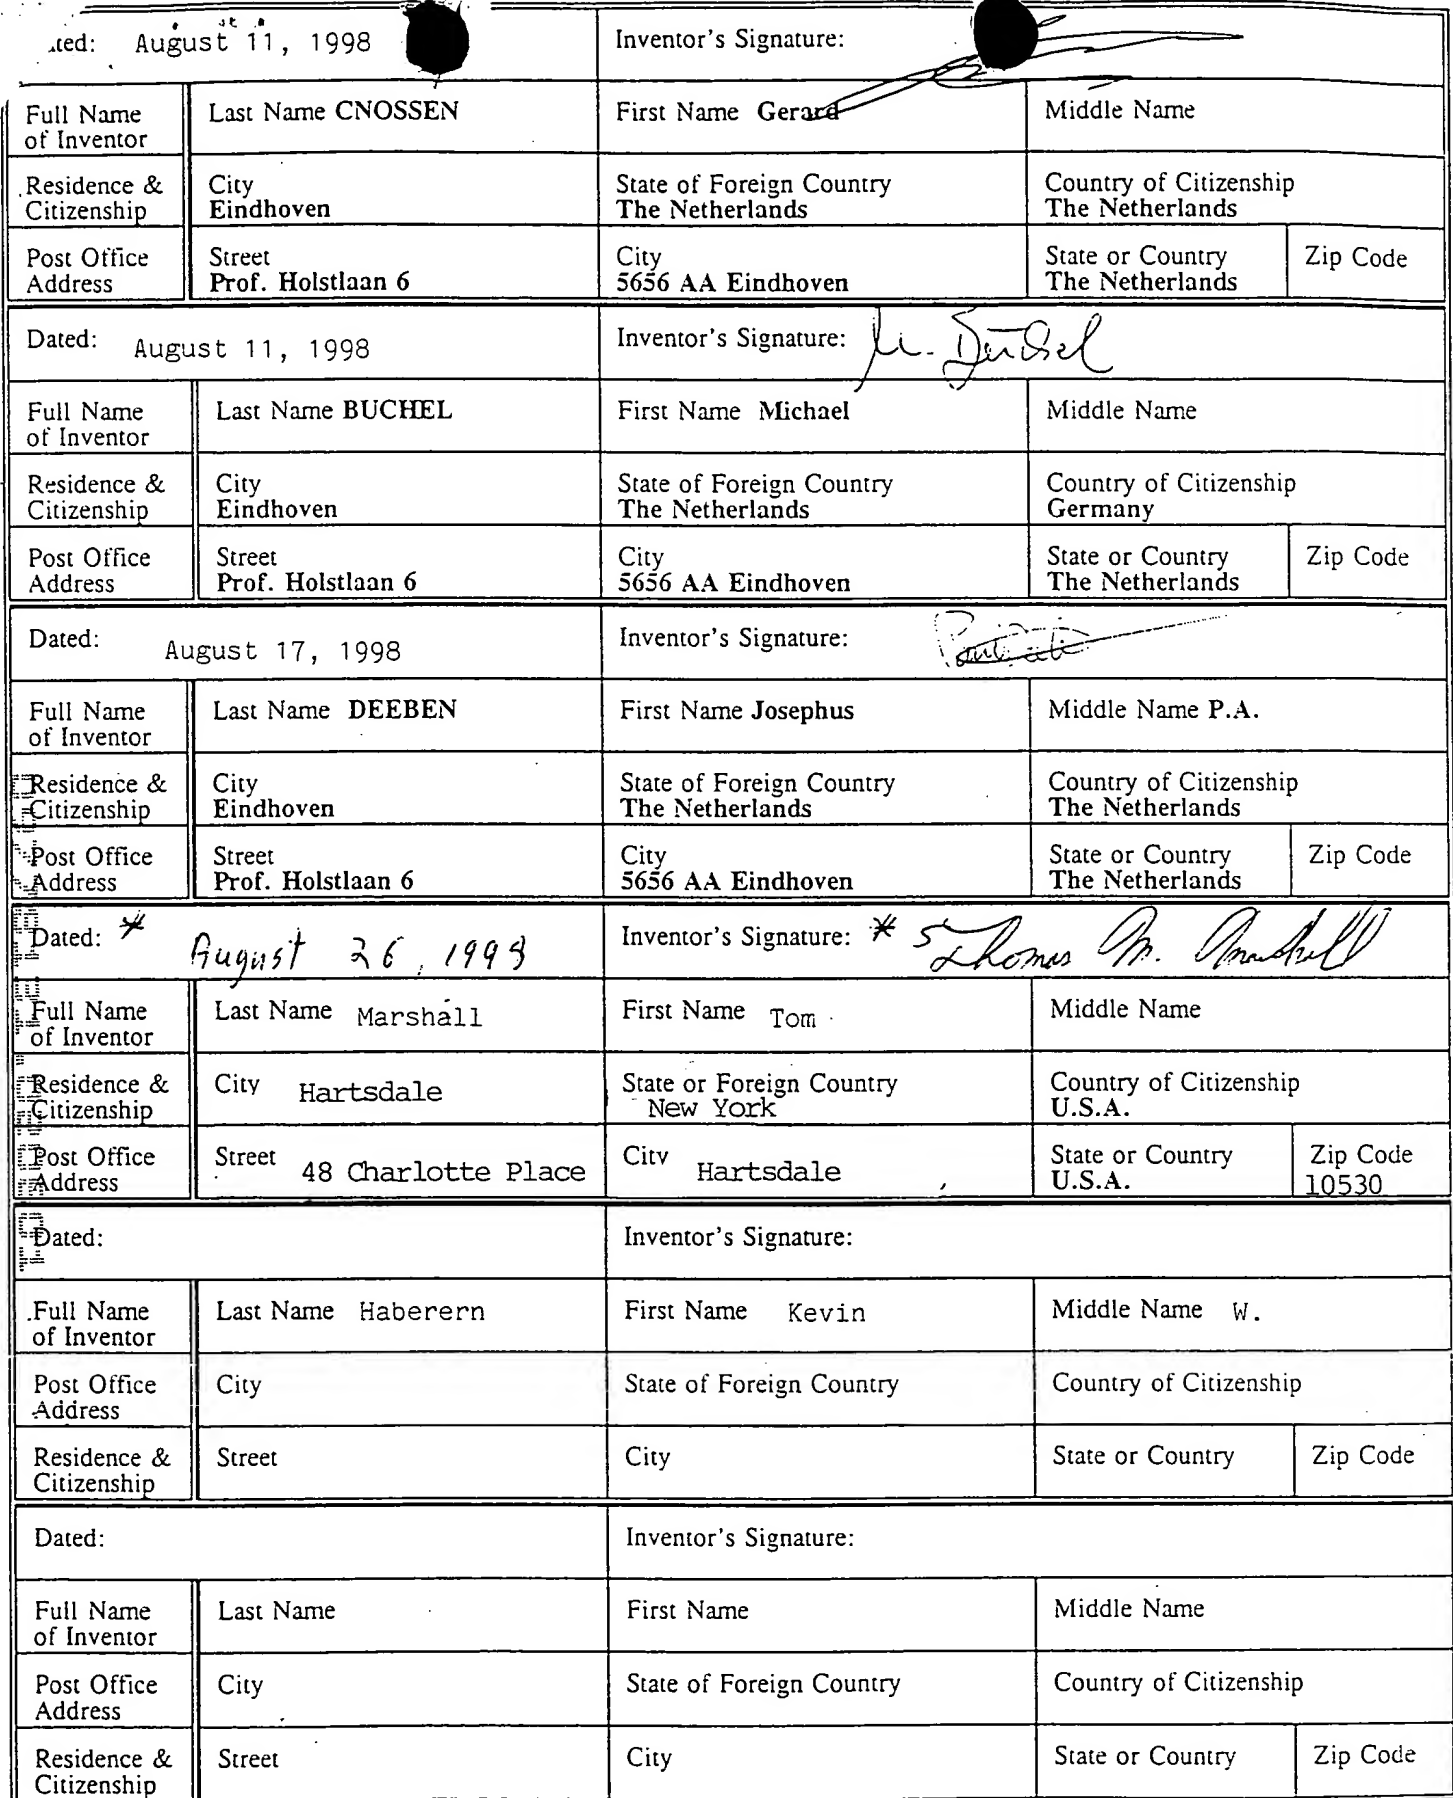 ted: August 11, 1998 Inventor's Signature:
Full Name of Inventor Last Name CNOSSEN First Name Gerard Middle Name
Residence & Citizenship City Eindhoven State of Foreign Country The Netherlands Country of Citizenship The Netherlands
Post Office Address Street Prof. Holstlaan 6 City 5656 AA Eindhoven State or Country The Netherlands Zip Code
Dated: August 11, 1998 Inventor's Signature: M. Büchel
Full Name of Inventor Last Name BUCHEL First Name Michael Middle Name
Residence & Citizenship City Eindhoven State of Foreign Country The Netherlands Country of Citizenship Germany
Post Office Address Street Prof. Holstlaan 6 City 5656 AA Eindhoven State or Country The Netherlands Zip Code
Dated: August 17, 1998 Inventor's Signature:
Full Name of Inventor Last Name DEEBEN First Name Josephus Middle Name P.A.
Residence & Citizenship City Eindhoven State of Foreign Country The Netherlands Country of Citizenship The Netherlands
Post Office Address Street Prof. Holstlaan 6 City 5656 AA Eindhoven State or Country The Netherlands Zip Code
Dated: * August 26, 1998 Inventor's Signature: * Thomas M. Marshall
Full Name of Inventor Last Name Marshall First Name Tom Middle Name
Residence & Citizenship City Hartsdale State or Foreign Country New York Country of Citizenship U.S.A.
Post Office Address Street 48 Charlotte Place City Hartsdale State or Country U.S.A. Zip Code 10530
Dated: Inventor's Signature:
Full Name of Inventor Last Name Haberern First Name Kevin Middle Name W.
Post Office Address City State of Foreign Country Country of Citizenship
Residence & Citizenship Street City State or Country Zip Code
Dated: Inventor's Signature:
Full Name of Inventor Last Name First Name Middle Name
Post Office Address City State of Foreign Country Country of Citizenship
Residence & Citizenship Street City State or Country Zip Code